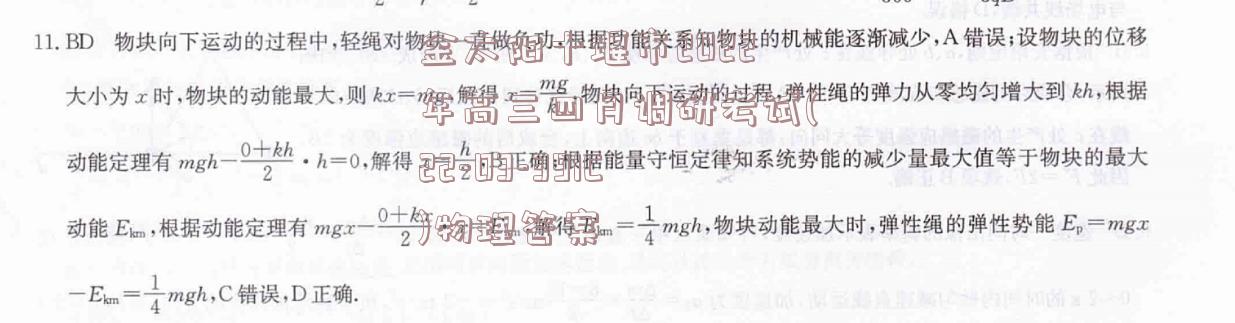 11. BD 物块向下运动的过程中,轻绳对物块一直做负功,根据功能关系知物块的机械能逐渐减少,A 错误;设物块的位移
大小为 x 时,物块的动能最大,则 kx=mg,解得 x=mg/k,物块向下运动的过程,弹性绳的弹力从零均匀增大到 kh,根据
动能定理有 mgh-(0+kh)/2·h=0,解得 x=h/2,B 正确;根据能量守恒定律知系统势能的减少量最大值等于物块的最大
动能 Ekm,根据动能定理有 mgx-(0+kx)/2·x=Ekm,解得 Ekm=1/4 mgh,物块动能最大时,弹性绳的弹性势能 Ep=mgx
-Ekm=1/4 mgh,C 错误,D 正确.
金太阳十堰市2022
年高三四月调研考试(
22-03-391C
)物理答案